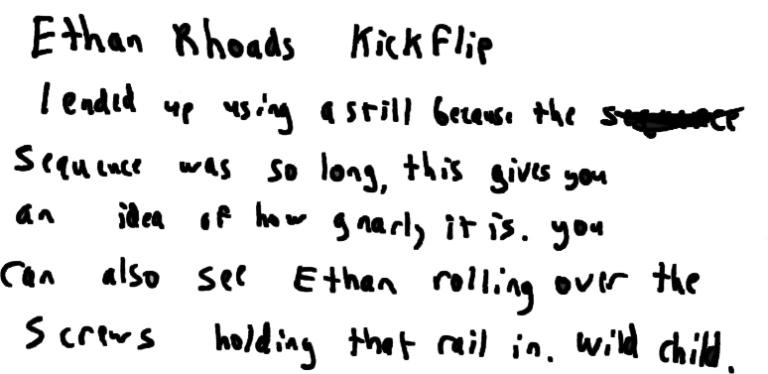 Ethan Rhoads Kickflip
I ended up using a still because the
sequence was so long, this gives you
an idea of how gnarly it is. you
can also see Ethan rolling over the
screws holding that rail in. wild child.